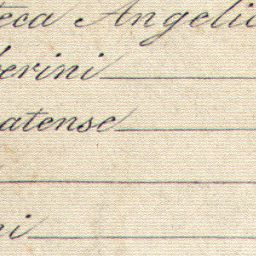 teca Angelic
erini
atense
ni